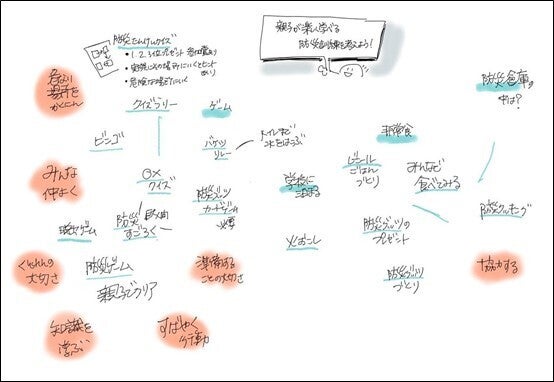 親子が楽しく学べる
防災訓練を考えよう!
防災たんけんクイズ
・1.2.3位プレゼント
・実際にその場所にいくとヒント
あり
・危険な場所にいく
危ない
場所を
かくにん
クイズラリー
ゲーム
防災倉庫の
中は?
ビンゴ
バケツ
リレー
トイレまで
水をはこぶ
非常食
みんな
仲よく
○×
クイズ
学校に
泊まる
ビニール
ごはん
づくり
みんなで
食べてみる
防災グッズ
カードゲーム
防災
すごろく
防災クッキング
火おこし
防災グッズの
プレゼント
くんれんの
大切さ
防災ゲーム
親子でクリア
準備する
ことの大切さ
防災グッズ
づくり
協力する
知識を
学ぶ
すばやく
行動